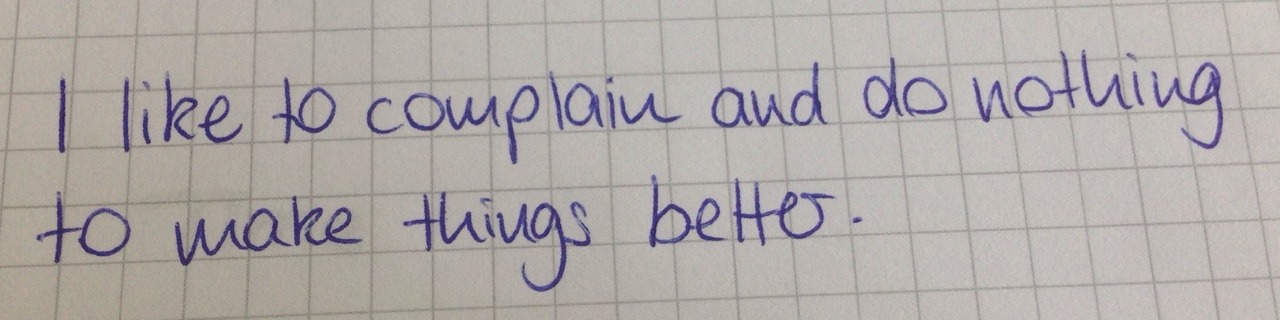 I like to complain and do nothing
to make things better.